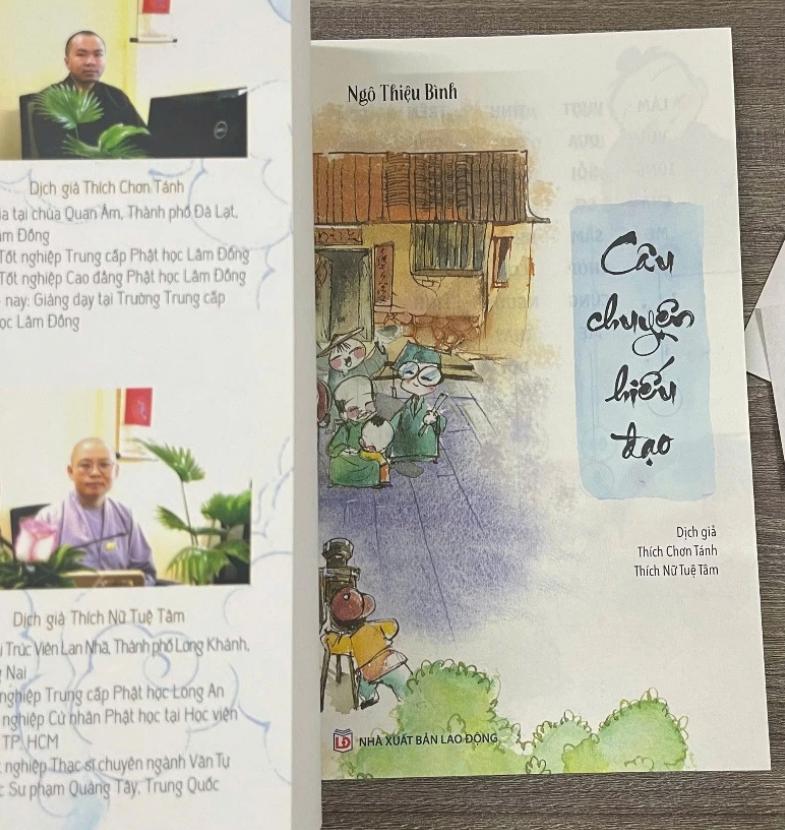 Dịch giả Thích Chơn Tánh
tại chùa Quan Âm, Thành phố Đà Lạt,
Đồng
Tốt nghiệp Trung cấp Phật học Lâm Đồng
Tốt nghiệp Cao đẳng Phật học Lâm Đồng
nay: Giảng dạy tại Trường Trung cấp
Lâm Đồng
Dịch giả Thích Nữ Tuệ Tâm
Trúc Viên Lan Nhã, Thành phố Long Khánh,
Nai
nghiệp Trung cấp Phật học Long An
nghiệp Cử nhân Phật học tại Học viện
TP. HCM
nghiệp Thạc sĩ chuyên ngành Văn Tự
Sư phạm Quảng Tây, Trung Quốc
Ngô Thiệu Bình
Câu
chuyện
hiếu
đạo
Dịch giả
Thích Chơn Tánh
Thích Nữ Tuệ Tâm
LĐ NHÀ XUẤT BẢN LAO ĐỘNG